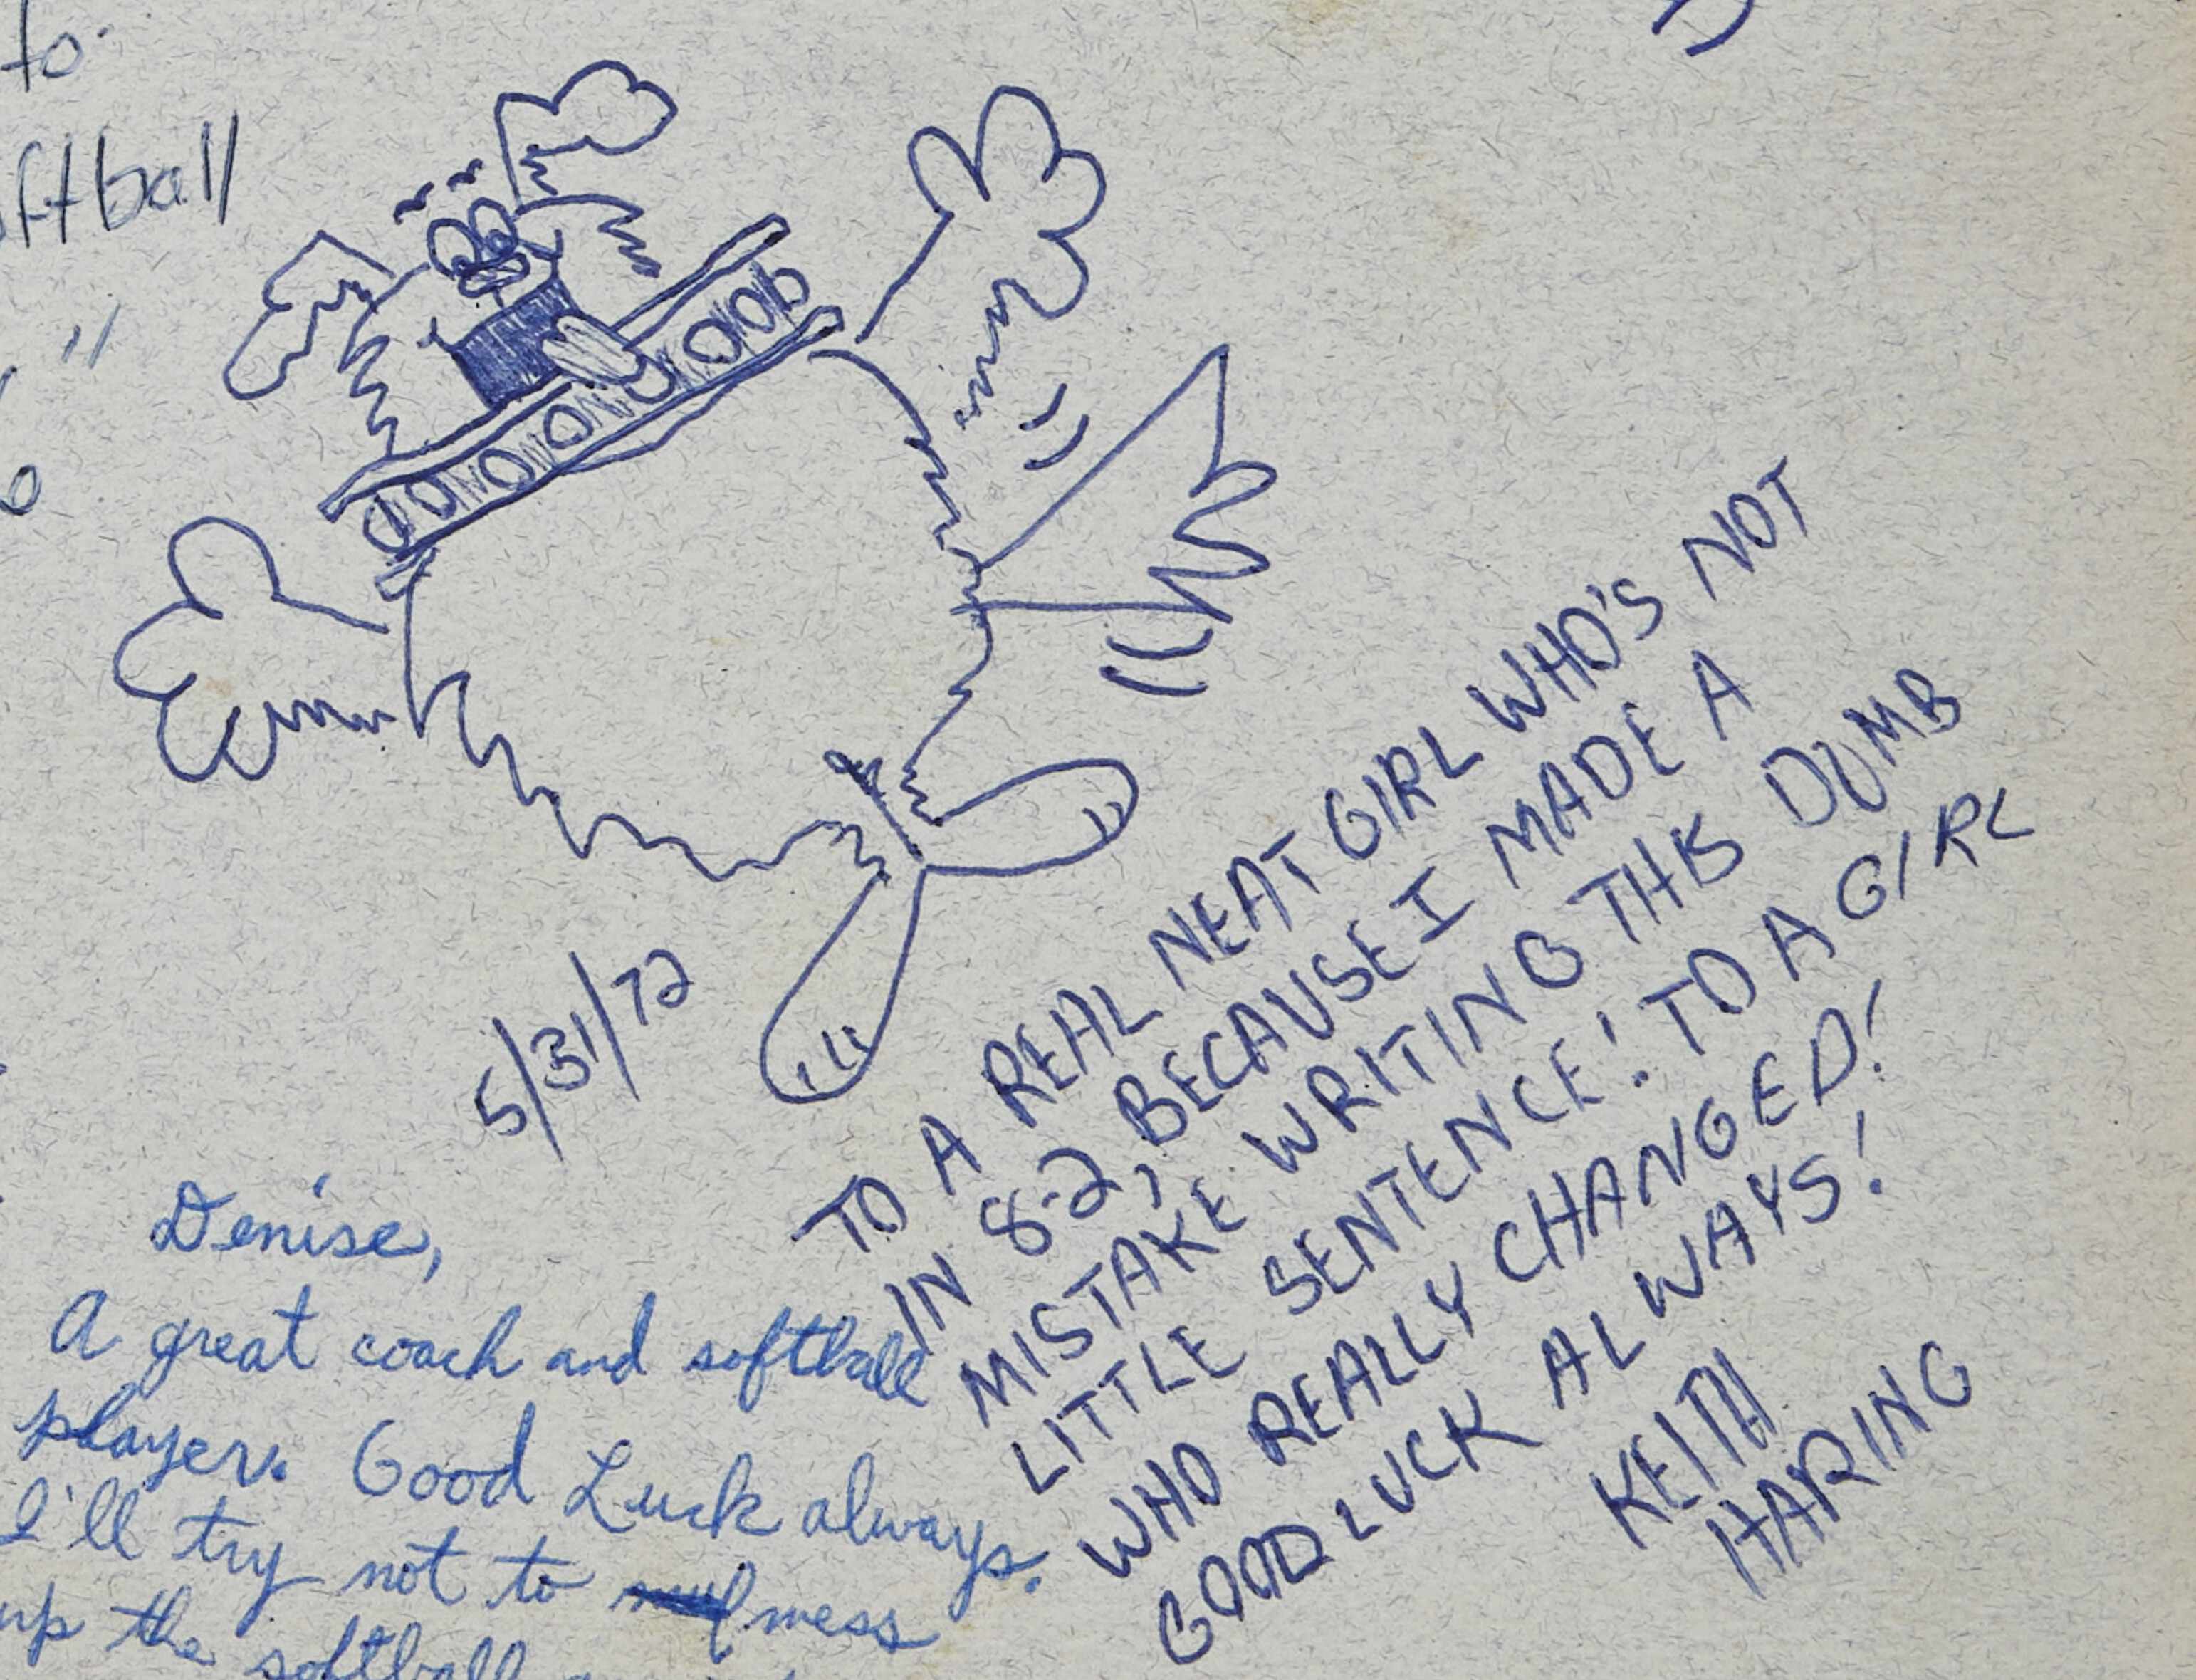 to
ftball
"
5/31/72
TO A REAL NEAT GIRL WHO'S NOT
IN 8-2, BECAUSE I MADE A
MISTAKE WRITING THIS DUMB
LITTLE SENTENCE! TO A GIRL
WHO REALLY CHANGED!
GOOD LUCK ALWAYS!
KEITH
HARING
Denise,
A great coach and softball
player. Good Luck always.
I'll try not to mess
up the softball